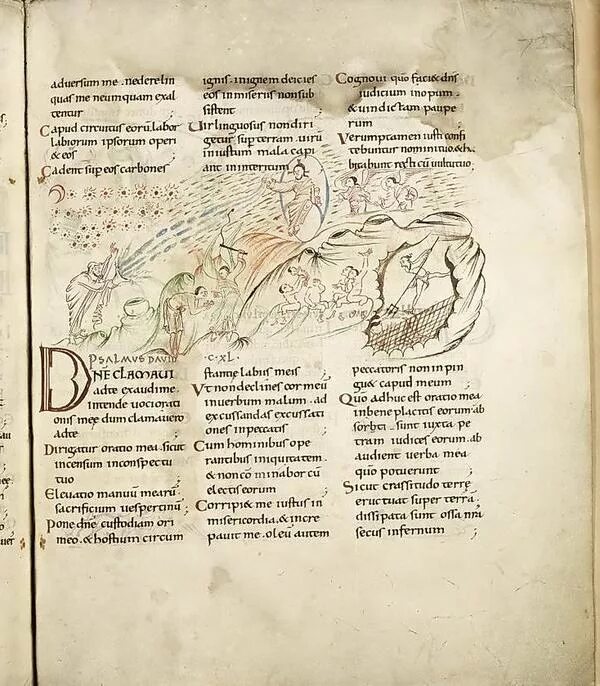 adversum me . nedere lin
quas me neumquam exal
tentur ;
Capud circuitus eorū labor
labiorum ipsorum operi
& eos ;
Cadent sup eos carbones
ignis . inignem deicies
eos inmiseriis nonsub
sistent ;
Uir linguosus nondiri
getur sup terram . uirū
iniustum mala capi
ent ininteritum ;
Cognoui quo facit dns
iudicium inopum .
& uindictam paupe
rum ;
Verumptamen iusti confi
tebuntur nomini tuo . & ha
bitabunt recti cū uultu tuo ;
PSALMUS DAVID
·C·XL·
DNE CLAMAUI
adte exaudime .
intende uoci orati
onis meę dum clamauero
adte ;
Dirigatur oratio mea . sicut
incensum inconspectu
tuo ;
Eleuatio manuū mearū .
sacrificium uespertinū ;
Pone dne custodiam ori
meo . & hostium circum
stantię labiis meis ;
Ut non declines cor meū
inuerbum malum . ad
excusandas excusati
ones inpeccatis ;
Cum hominibus ope
rantibus iniquitatem .
& noncō minabor cū
electis eorum ;
Corripi& me iustus in
misericordia . & incre
pauit me . oleū autem
peccatoris non in pin
gu& capud meum ;
Quo adhuc est oratio mea
inbene placitis eorum . ab
sorbti . sunt iuxta pe
tram iudices eorum . ab
audient uerba mea
quō potuerunt ;
Sicut crassitudo terrę
eructuat super terrā .
dissipata sunt ossa nr̄a
secus infernum ;